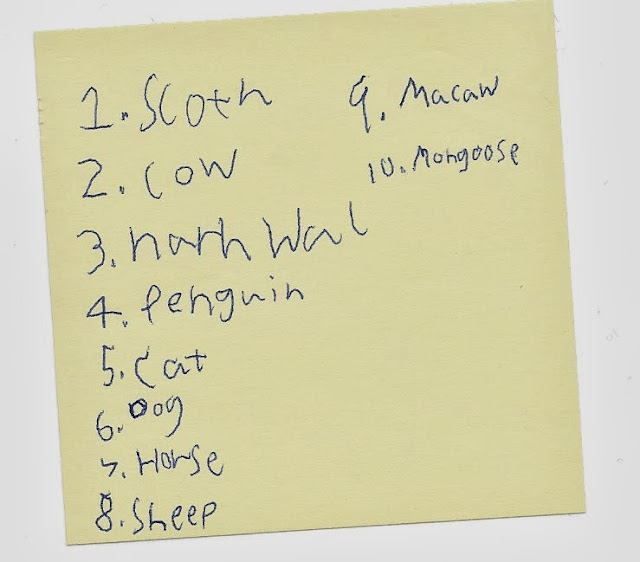 1. Sloth
2. Cow
3. narhwal
4. Penguin
5. Cat
6. Dog
7. Horse
8. Sheep
9. Macaw
10. Mongoose